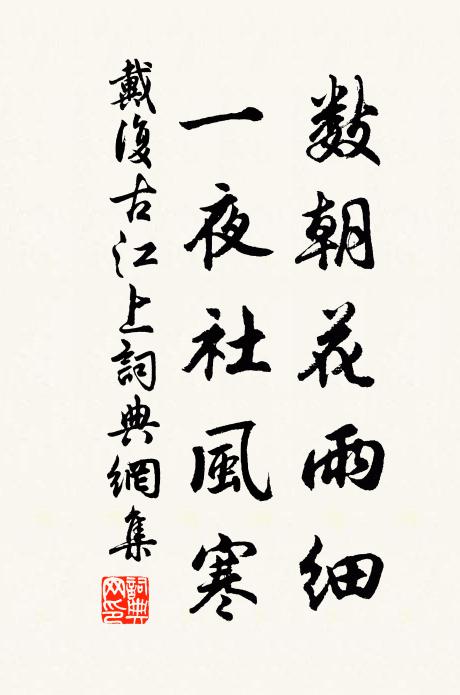 數朝花雨細
一夜社風寒
戴復古江上詞典網集
詞典网印